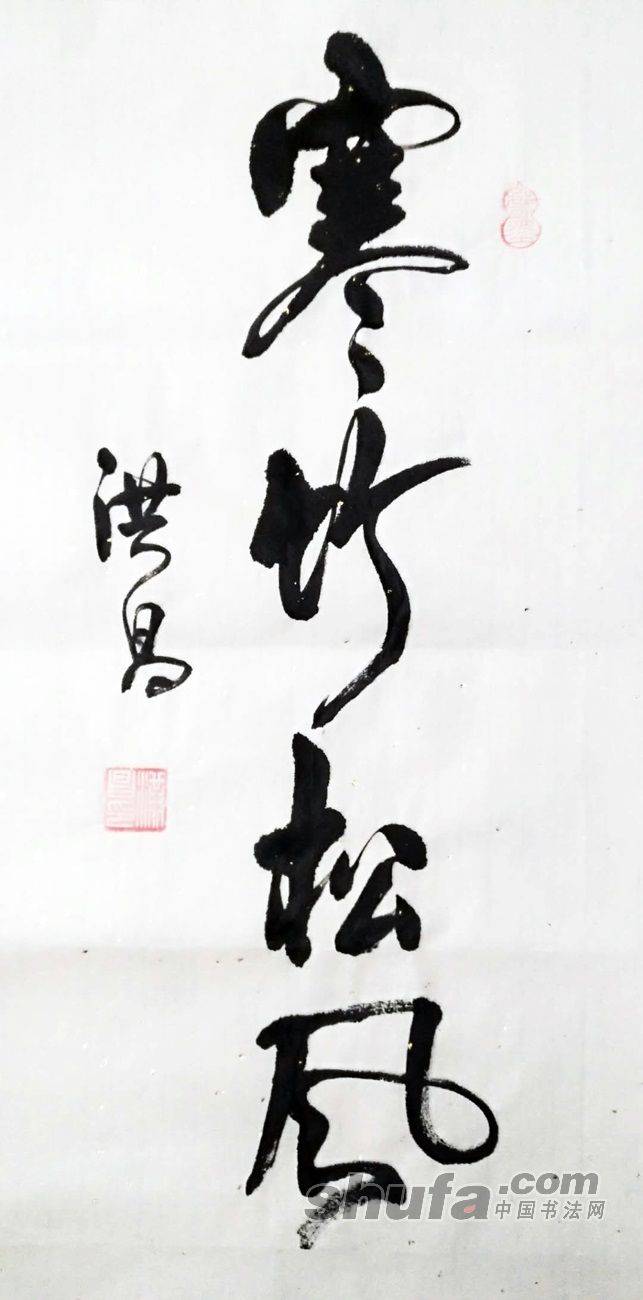 寒竹松风
洪昌
shufa.com
中国书法网